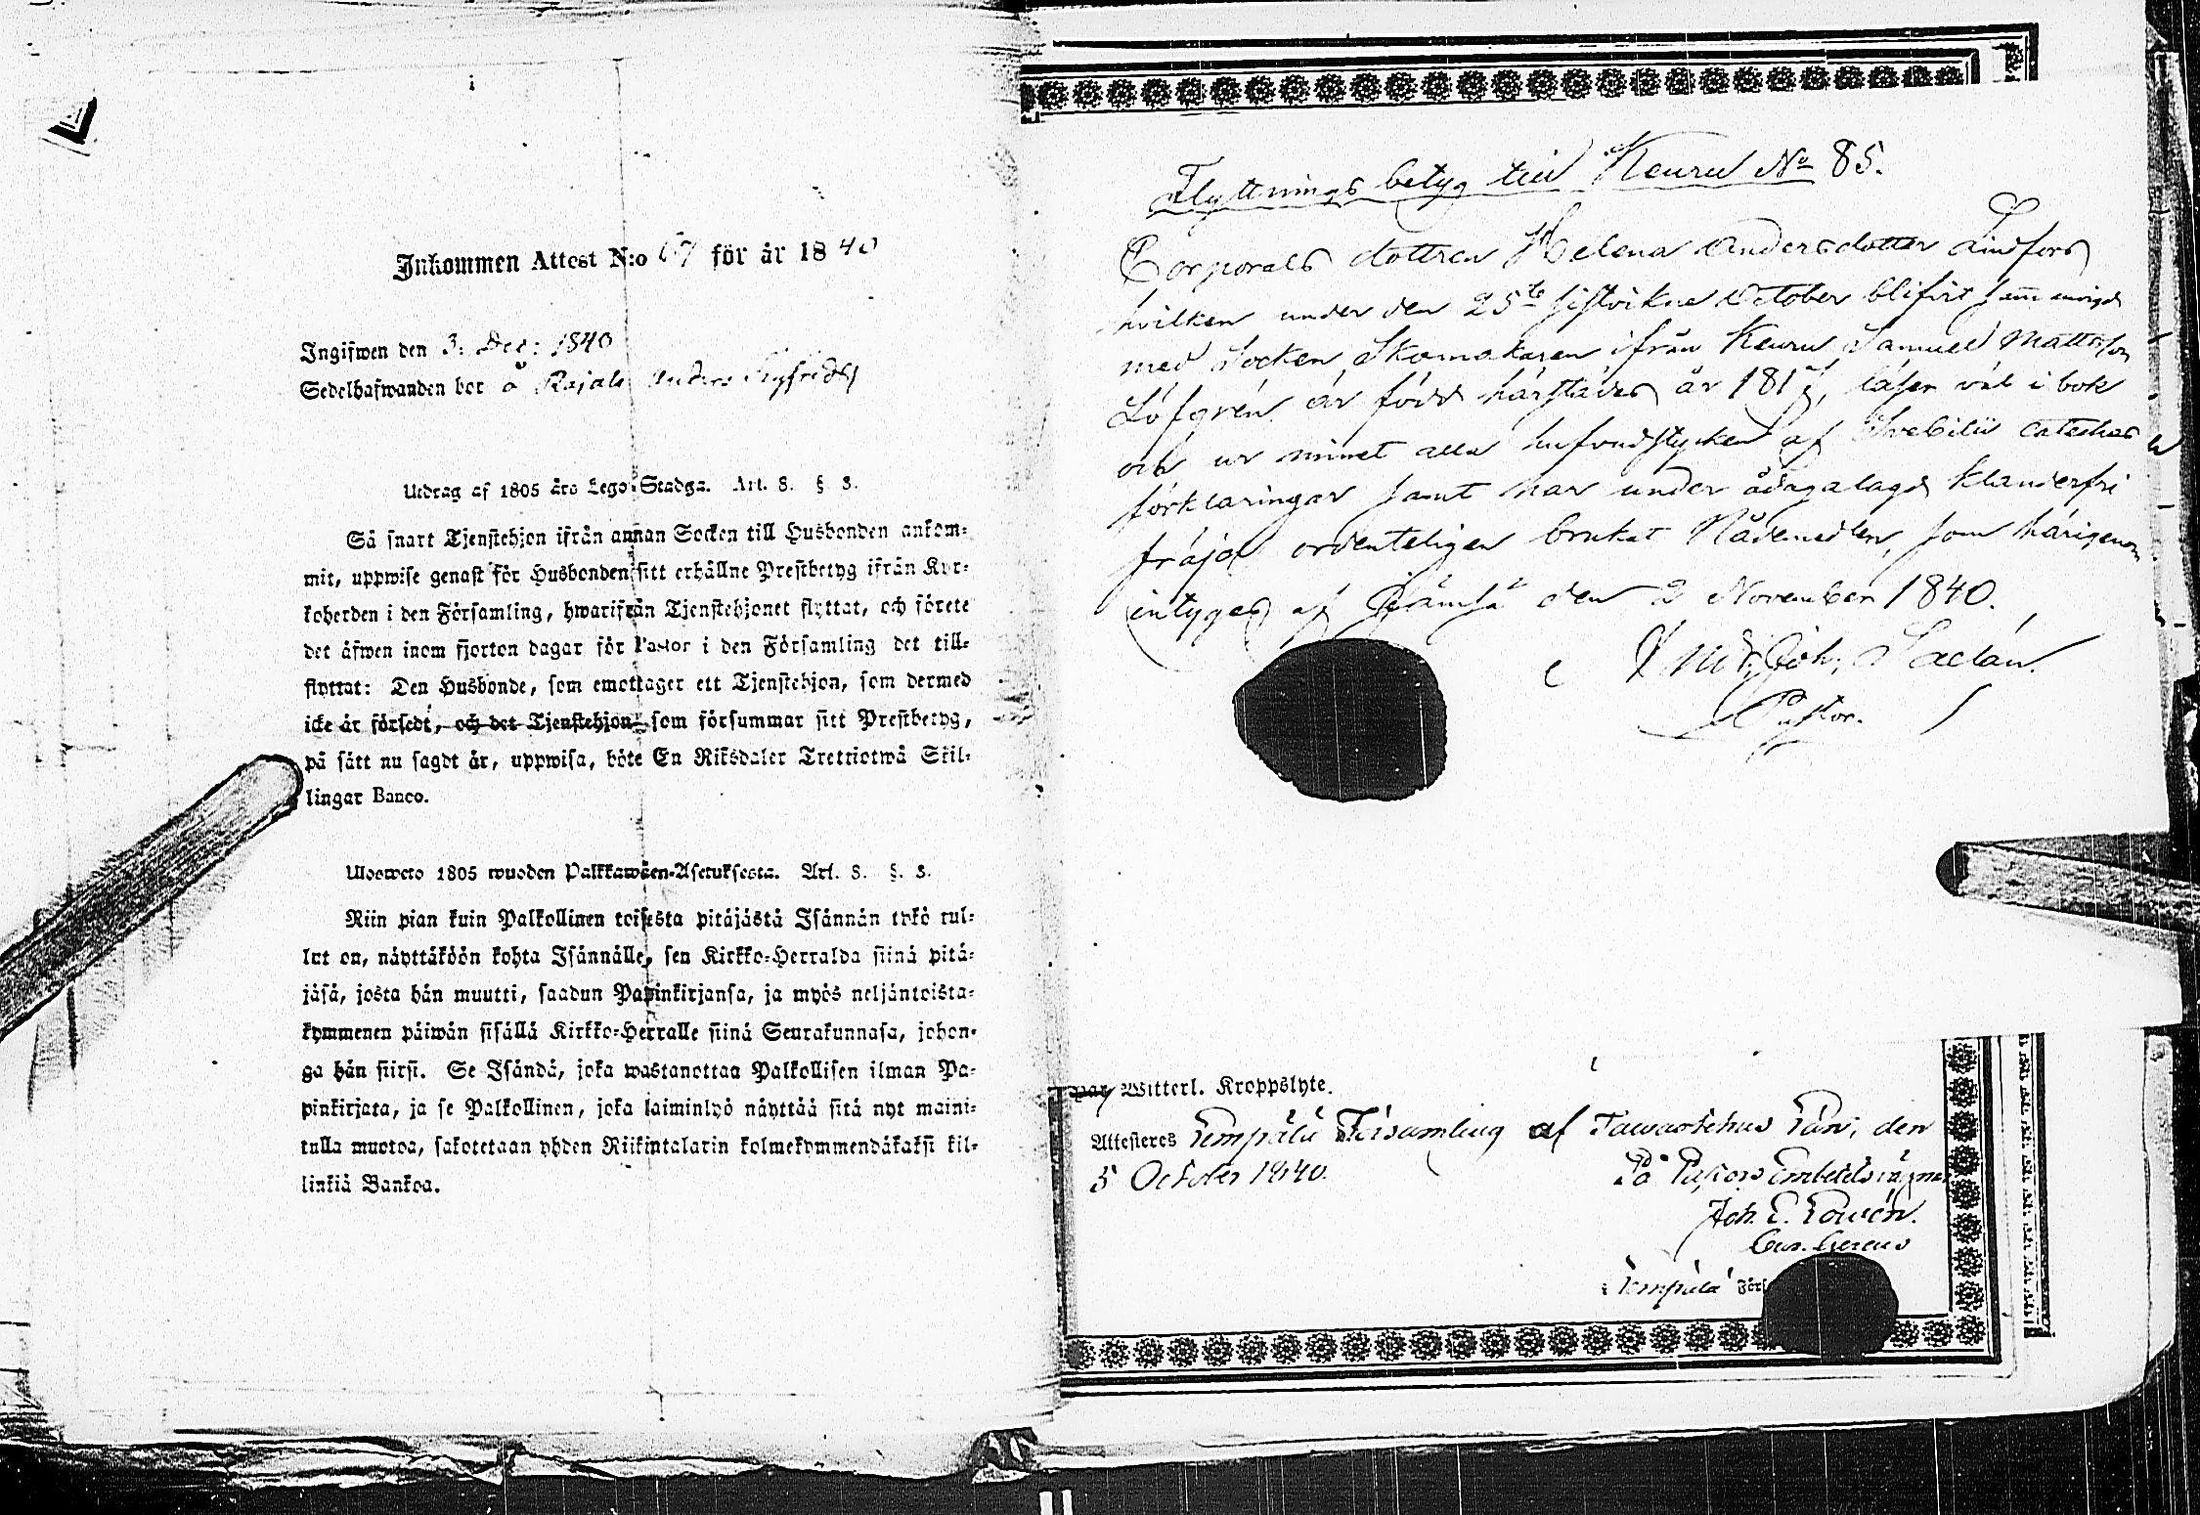 Inkommen Attest N:o 67 för år 1840
Ingifwen den 3: Dec: 1840
Sedelhafwanden bor å Rajala Anders Sigfreds
Utdrag af 1805 års Lego-Stadga. Art. 8. § 3.
Så snart Tjenstehjon ifrån annan Socken till Husbonden ankom-
mit, uppwise genast för Husbonden sitt erhållne Prestbetyg ifrån Kyr-
koherden i den Församling, hwarifrån Tjenstehjonet flyttat, och förete
det äfwen inom fjorton dagar för Pastor i den Församling det till-
flyttat: Den Husbonde, som emottager ett Tjenstehjon, som dermed
icke är försedt, och det Tjenstehjon som försummar sitt Prestbetyg,
på sätt nu sagdt är, uppwisa, böte En Riksdaler Trettiotwå Skil-
lingar Banco.
Ulosweto 1805 wuoden Palkkawäen-Asetuksesta. Art. 8. §. 3.
Niin pian kuin Palkollinen toisesta pitäjästä Isännän tykö tul-
lut on, näyttäköön kohta Isännälle, sen Kirkko-Herralda siinä pitä-
jäsä, josta hän muutti, saadun Papinkirjansa, ja myös neljäntoista-
kymmenen päiwän sisällä Kirkko-Herralle siinä Seurakunnasa, johon-
ga hän siirsi. Se Isändä, joka wastanottaa Palkollisen ilman Pa-
pinkirjata, ja se Palkollinen, joka laiminlyö näyttää sitä nyt maini-
tulla muotoa, sakotetaan yhden Riikintalarin kolmekymmendäkaksi kil-
linkiä Bankoa.
Flyttnings betyg till Keuru No 85.
Corporals dottren Helena Andersdotter Lindfors
hvilken under den 25te sistvikne October blifvit sammanvigd
med Socken Skomakaren ifrån Keuru Samuel Mattsson
Löfgrén är född härstädes år 181 , läser väl i bok
och ur minnet alla hufvudstycken af Svebilii cateches
förklaringar samt har under ådagalagd klanderfri
fräjd ordenteligen brukat Nådemedlen, som härigenom
intygas af Jämsä den 2 November 1840.
And. Joh. Sadén.
Pastor.
Witterl. Kroppslyte.
Attesteres Lempälä Församling af Tawastehus Län, den
5 October 1840.
På Pastors Embetets vägnar
Joh. E. Lowén.
Lempälä Förs